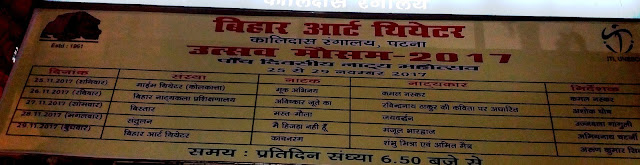 कालिदास रंगालय
बिहार आर्ट थियेटर
कालिदास रंगालय, पटना
उत्सव मौसम-2017
पाँच दिवसीय नाट्य महोत्सव
25 से 29 नवम्बर 2017
Estd : 1961
ITI, UNESCO
दिनांक संस्था नाटक नाट्यकार निर्देशक
25.11.2017 (शनिवार) माईम थियेटर (कोलकाता) मूक अभिनय कमल नस्कर कमल नस्कर
26.11.2017 (रविवार) बिहार नाट्यकला प्रशिक्षणालय अविष्कार जूते का रविन्द्रनाथ ठाकुर की कविता पर आधारित अशोक घोष
27.11.2017 (सोमवार) बिस्तार मस्त मौला जयवर्द्धन गांगुली
28.11.2017 (मंगलवार) संतुलन मैं हिजड़ा नहीं हूँ मंजुल भारद्वाज
29.11.2017 (बुधवार) बिहार आर्ट थियेटर कांचनरंग शंभु मित्रा एवं अमित मैत्र अरूण कुमार
समय : प्रतिदिन संध्या 6.50 बजे से